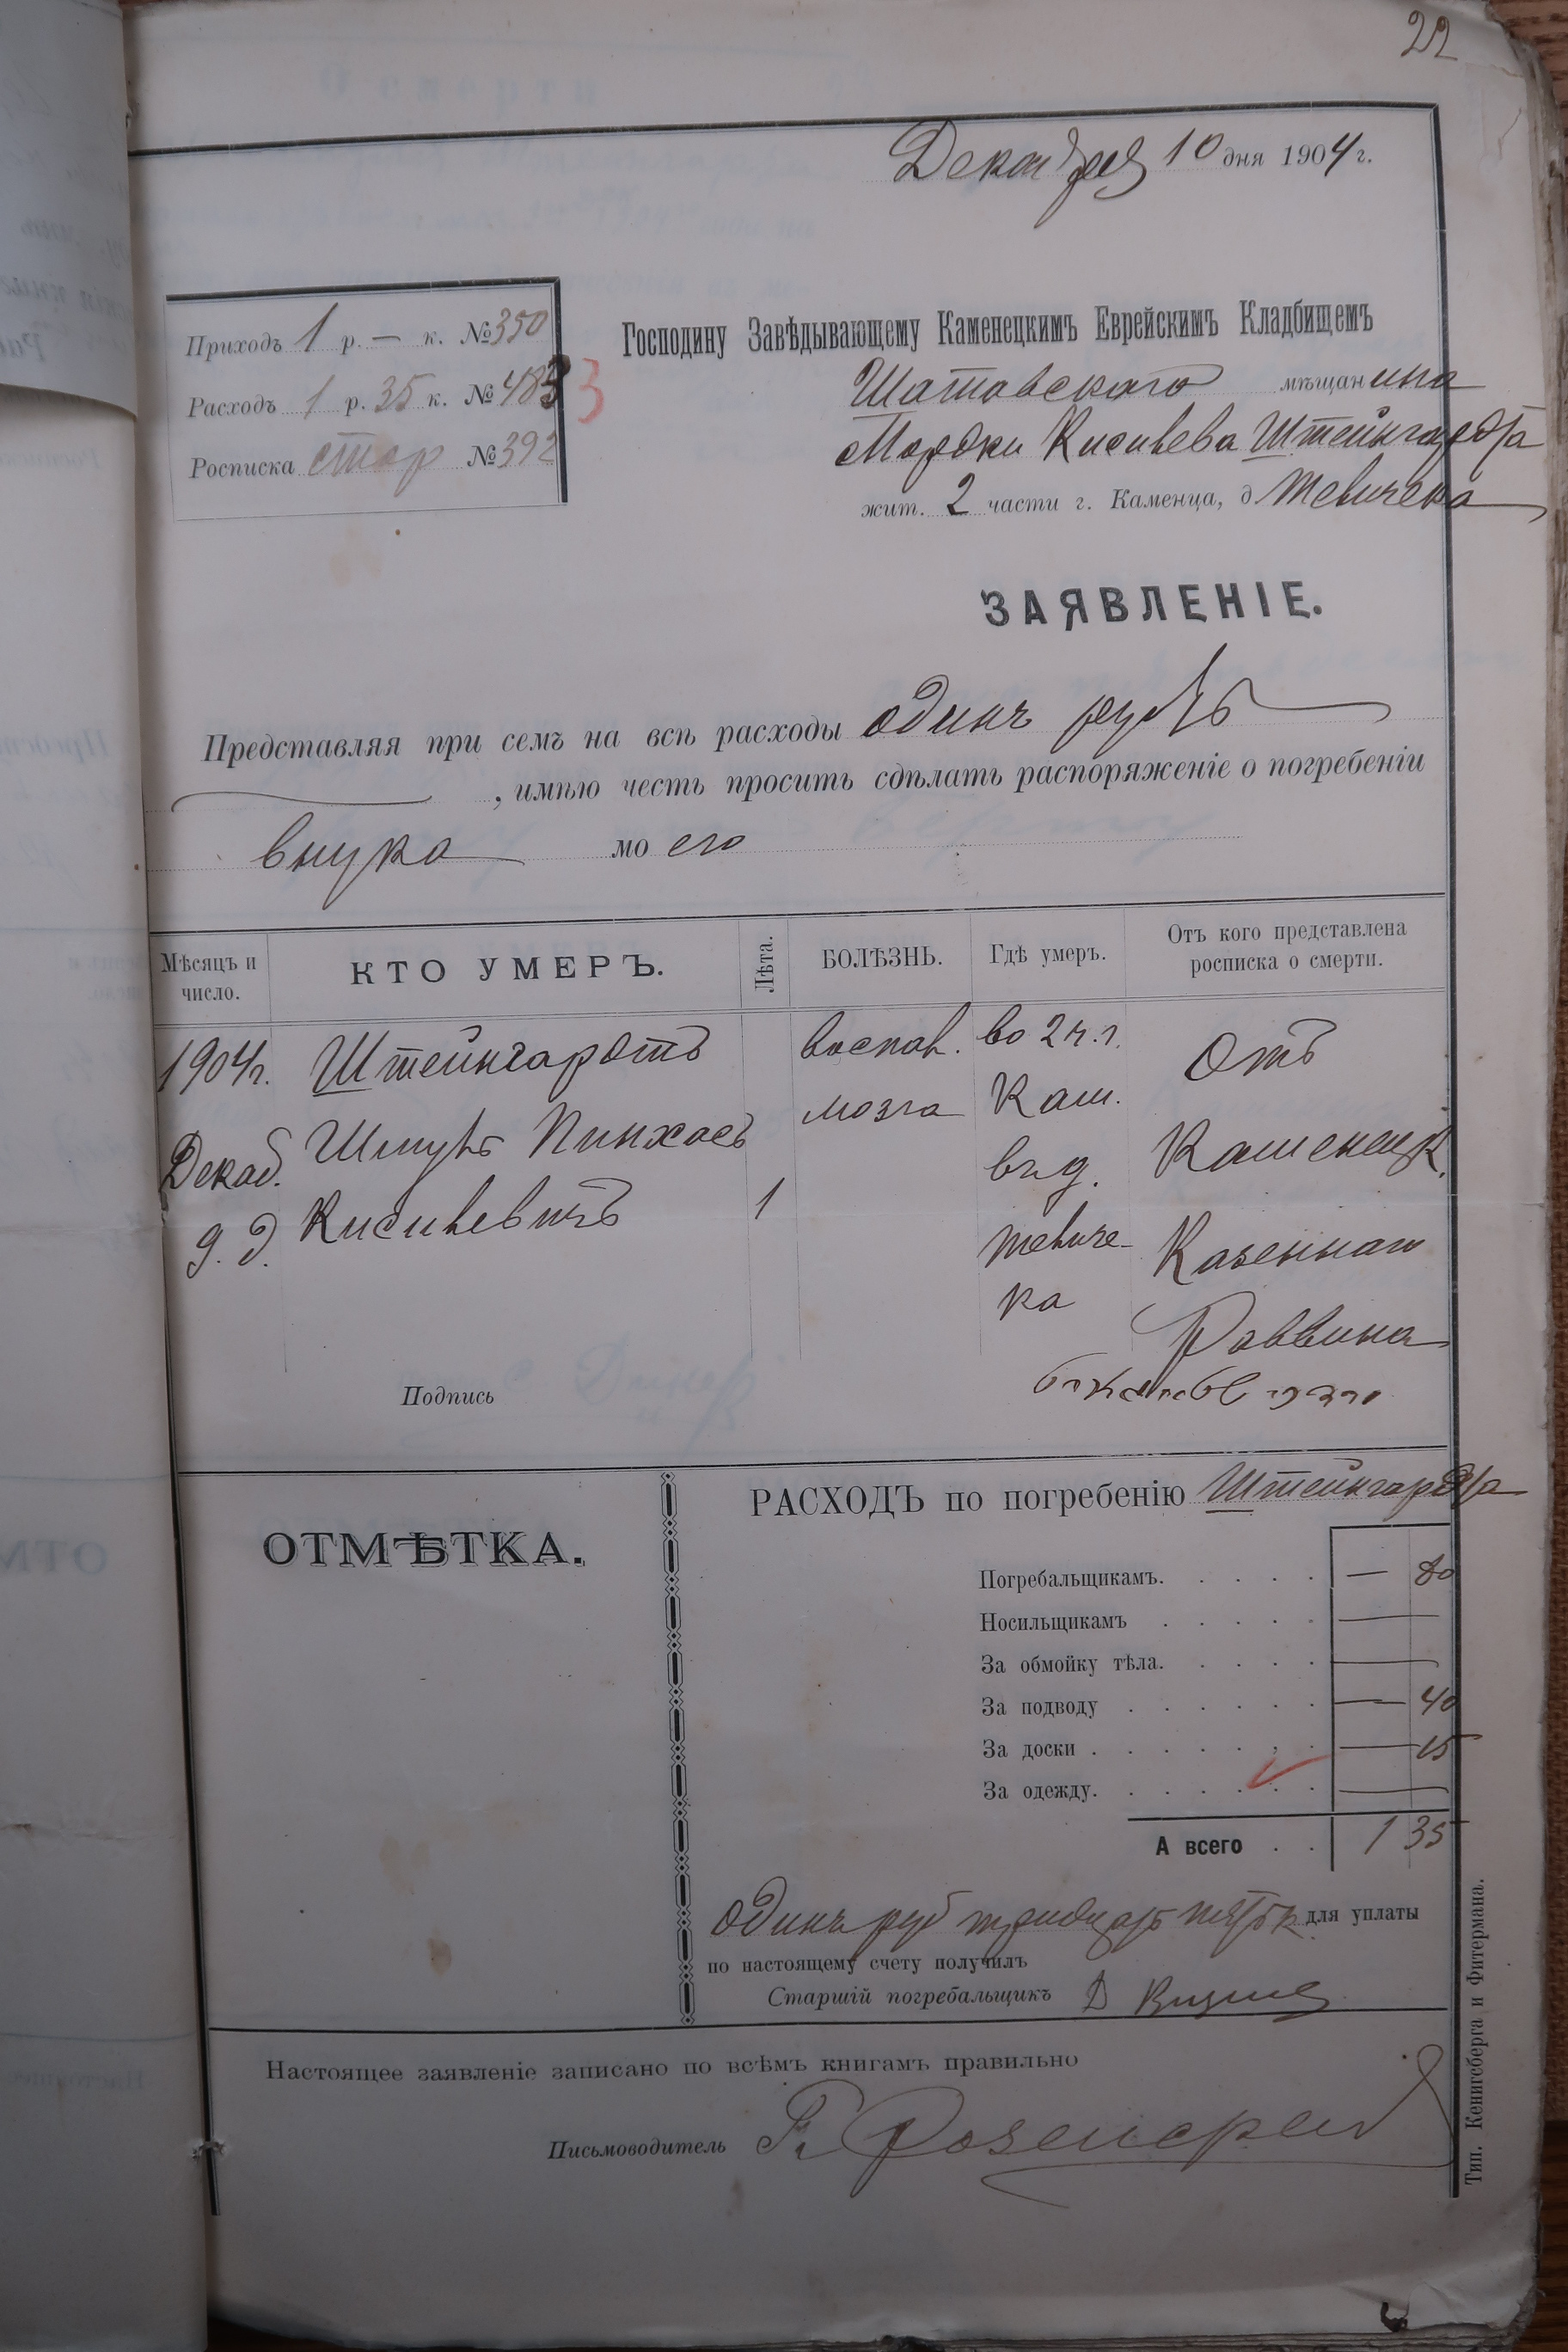 22
Декабря 10 дня 1904 г.
Приходъ 1 р. — к. № 350
Расходъ 1 р. 35 к. № 483 3
Росписка стар № 392
Господину Завѣдывающему Каменецкимъ Еврейскимъ Кладбищемъ
Шатовского мѣщанина
Мордки Кисилева Штейнгардта
жит. 2 части г. Каменца, д Тевичека
ЗАЯВЛЕНІЕ.
Представляя при семъ на всѣ расходы одинъ рубль
, имѣю честь просить сдѣлать распоряженіе о погребеніи
внука моего
Мѣсяцъ и число.
КТО УМЕРЪ.
Лѣта.
БОЛѢЗНЬ.
Гдѣ умеръ.
Отъ кого представлена росписка о смерти.
1904г. Штейнгардтъ воспал. во 2 ч. г. Отъ
Декаб. Шмуль Пинхасъ мозга Кам. Каменецк.
9. д. Кисилевичъ 1 въ д. Казеннаго
Тевиче-
ка Раввина
Подпись
ОТМѢТКА.
РАСХОДЪ по погребенію Штейнгардта
Погребальщикамъ. — 80
Носильщикамъ —
За обмойку тѣла. —
За подводу — 40
За доски — 15
За одежду. —
А всего 1 35
Одинъ руб тридцать пять к для уплаты
по настоящему счету получилъ
Старшій погребальщикъ Д
Настоящее заявленіе записано по всѣмъ книгамъ правильно
Письмоводитель
Тип. Кенигсберга и Фитермана.